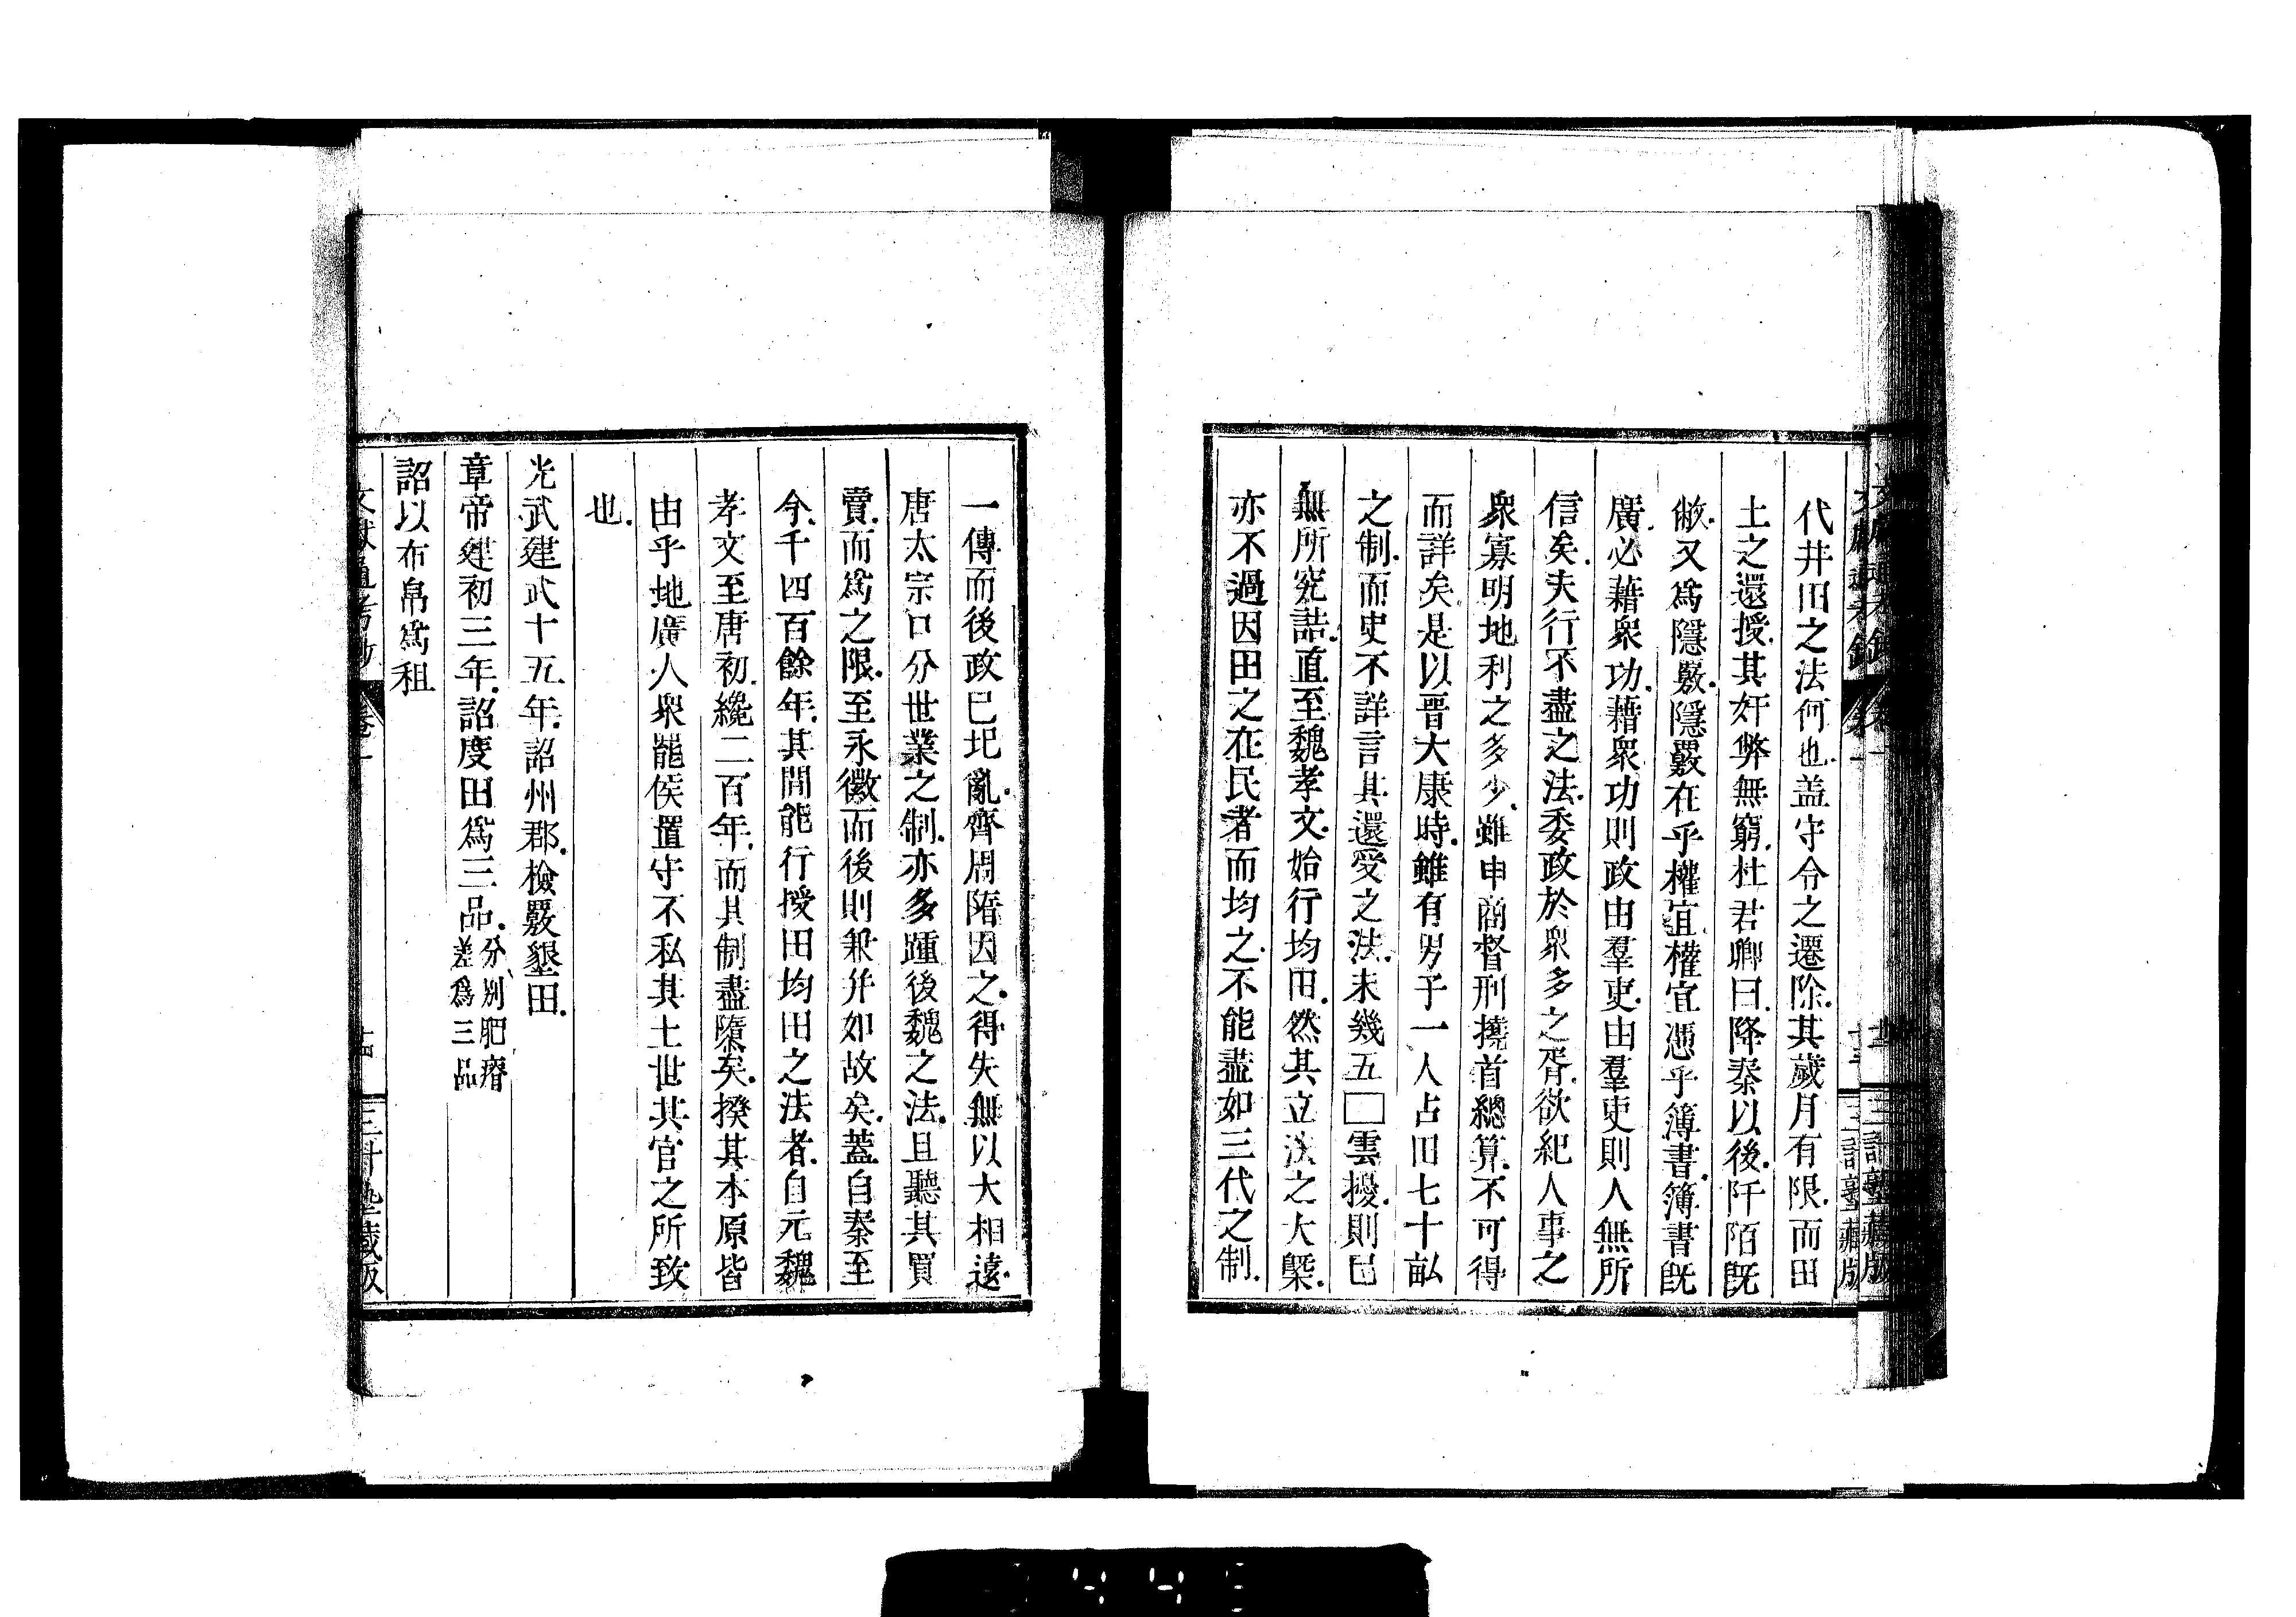 代井田之法何也盖守令之遷除其歲月有限而田
土之還授其奸弊無窮杜君卿曰降秦以後阡陌既
敝又爲隱覈隱覈在乎權宜權宜憑乎簿書簿書既
廣必藉衆功藉衆功則政由羣吏由羣吏則人無所
信矣夫行不盡之法委政於衆多之胥欲紀人事之
衆寡明地利之多少雖申商督刑撓首總算不可得
而詳矣是以晋大康時雖有男子一人占田七十畝
之制而史不詳言其還受之法未幾五□雲擾則已
無所究詰直至魏孝文始行均田然其立法之大槩
亦不過因田之在民者而均之不能盡如三代之制
一傳而後政已圮亂齊周隋因之得失無以大相遠
唐太宗口分世業之制亦多踵後魏之法且聽其買
賣而爲之限至永徽而後則兼并如故矣蓋自秦至
今千四百餘年其間能行授田均田之法者自元魏
孝文至唐初纔二百年而其制盡隳矣揆其本原皆
由乎地廣人衆罷侯置守不私其土世其官之所致
也
光武建武十五年詔州郡檢覈墾田
章帝建初三年詔度田爲三品分別肥瘠差爲三品
詔以布帛爲租
文獻通考鈔 卷一 十四 三科塾藏版